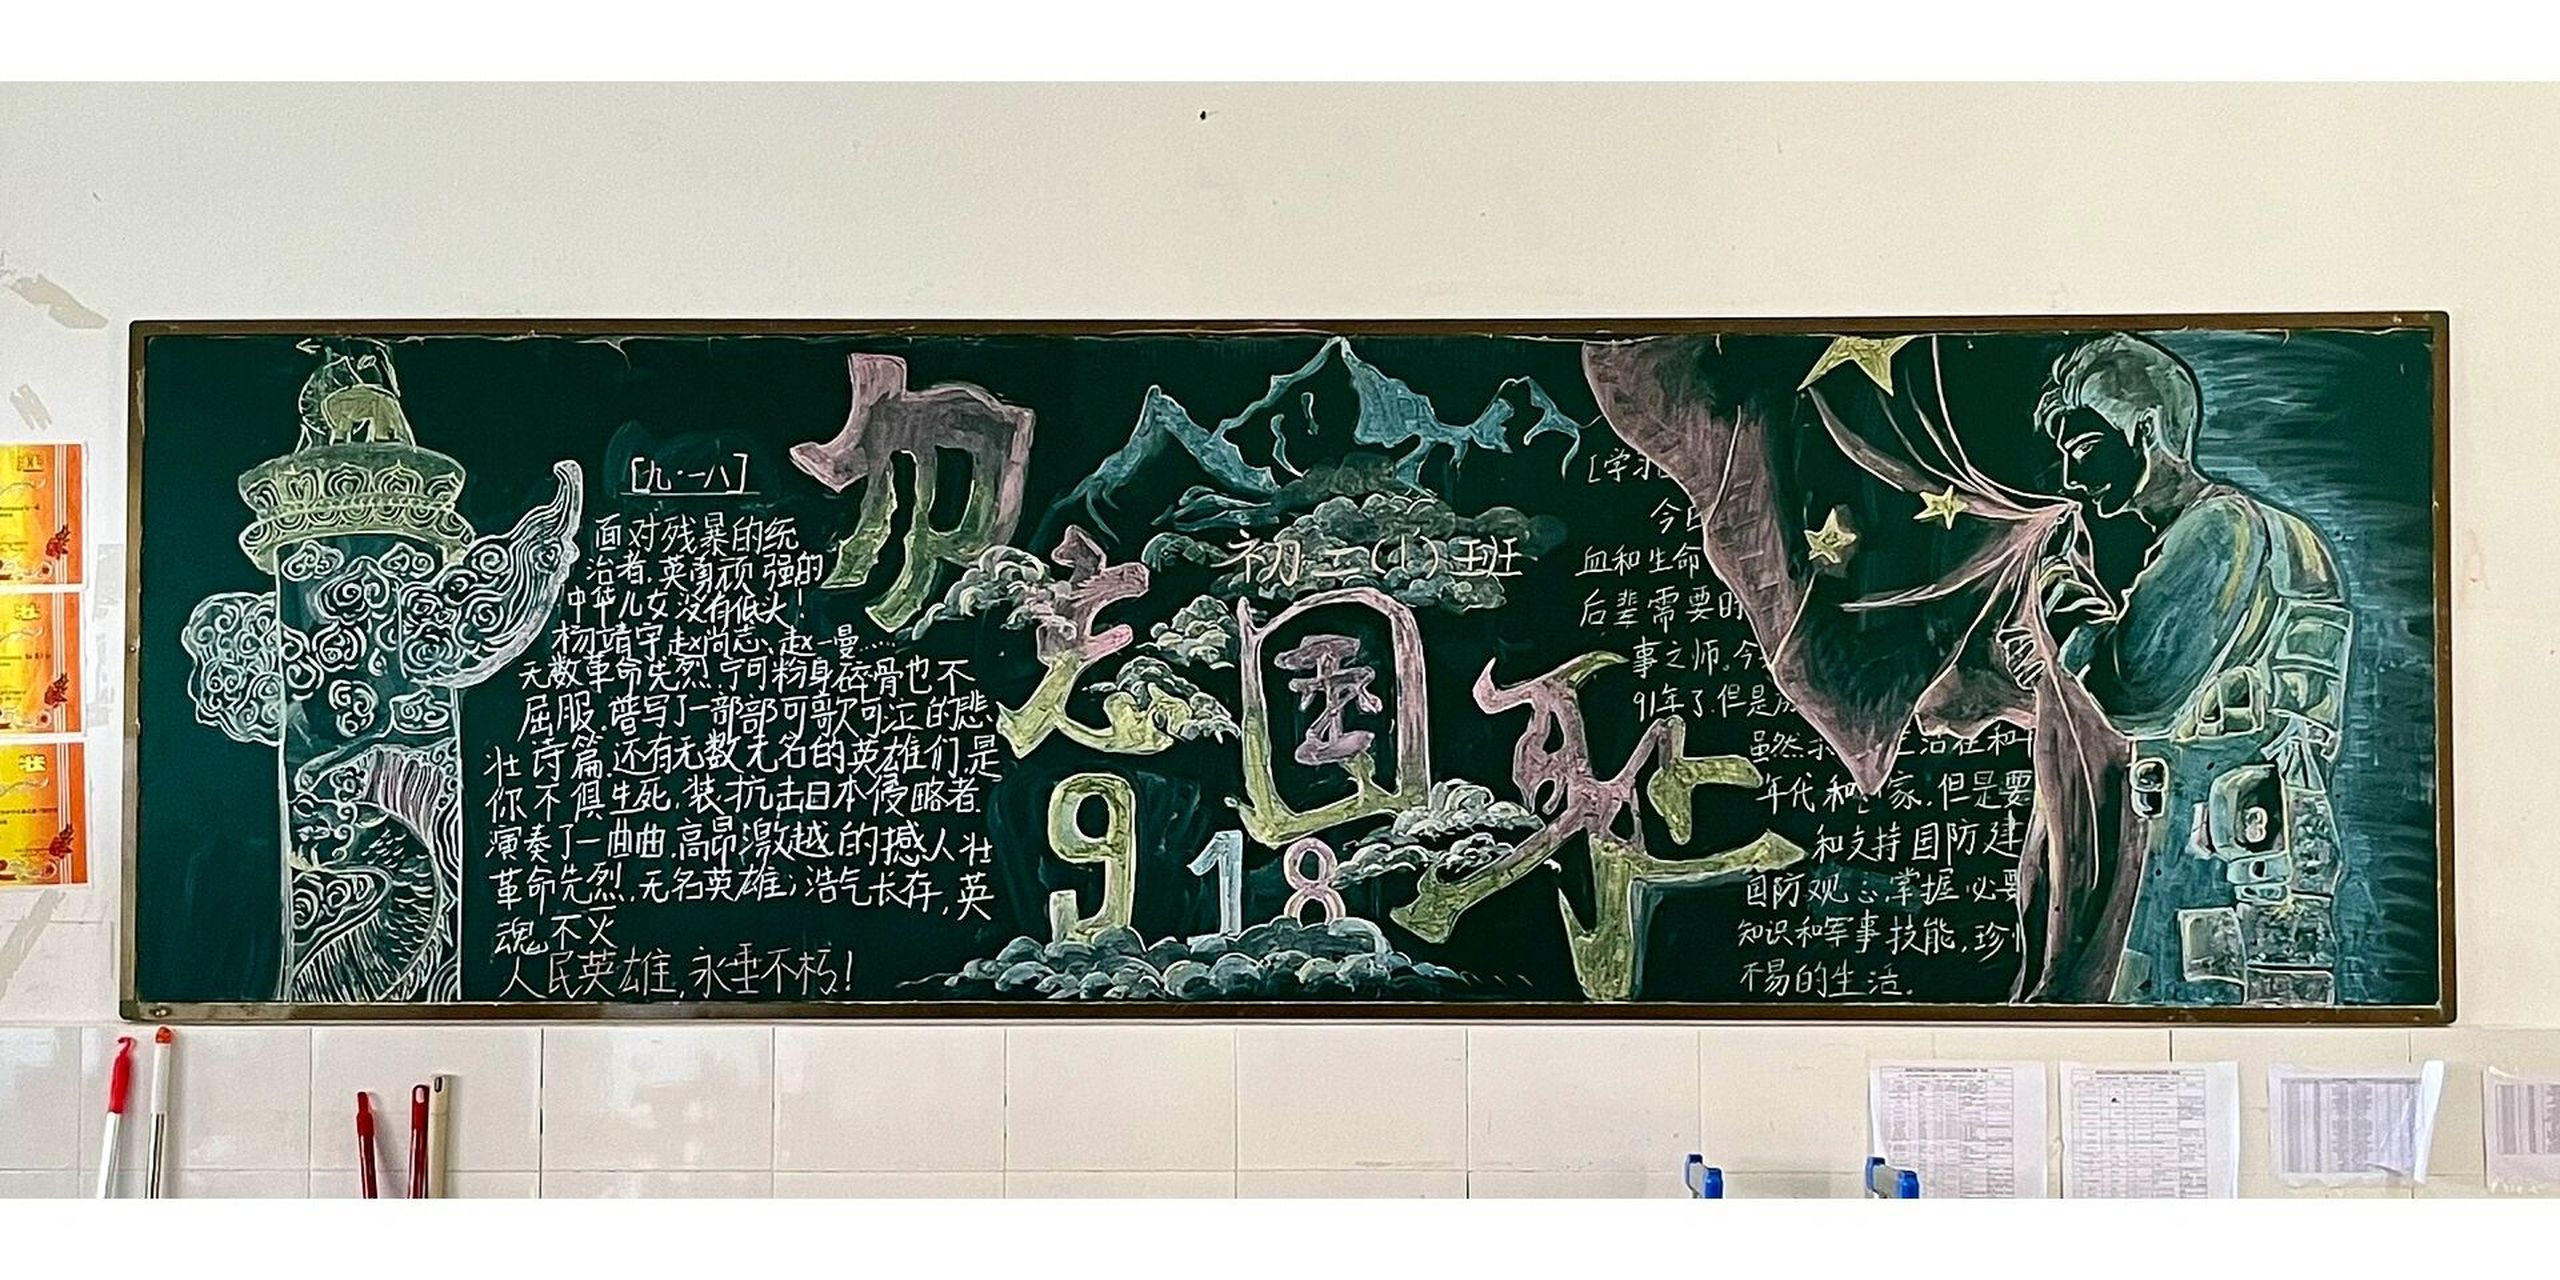 [九·一八]
面对残暴的统
治者,英勇顽强的
中华儿女没有低头!
杨靖宇、赵尚志、赵一曼……
无数革命先烈宁可粉身碎骨也不
屈服.谱写了一部部可歌可泣的悲
壮诗篇.还有无数无名的英雄们.是
你不惧生死.装抗击日本侵略者.
演奏了一曲曲.高昂激越的撼人壮
革命先烈,无名英雄;浩气长存,英
魂不灭
人民英雄,永垂不朽!
勿忘国耻
初二(1)班
918
[学习
今日
血和生命
后辈需要时
事之师。今
91年了.但是历
虽然 生活在和
年代和 家.但是要
和支持国防建
国防观念.掌握必要
知识和军事技能,珍
不易的生活.